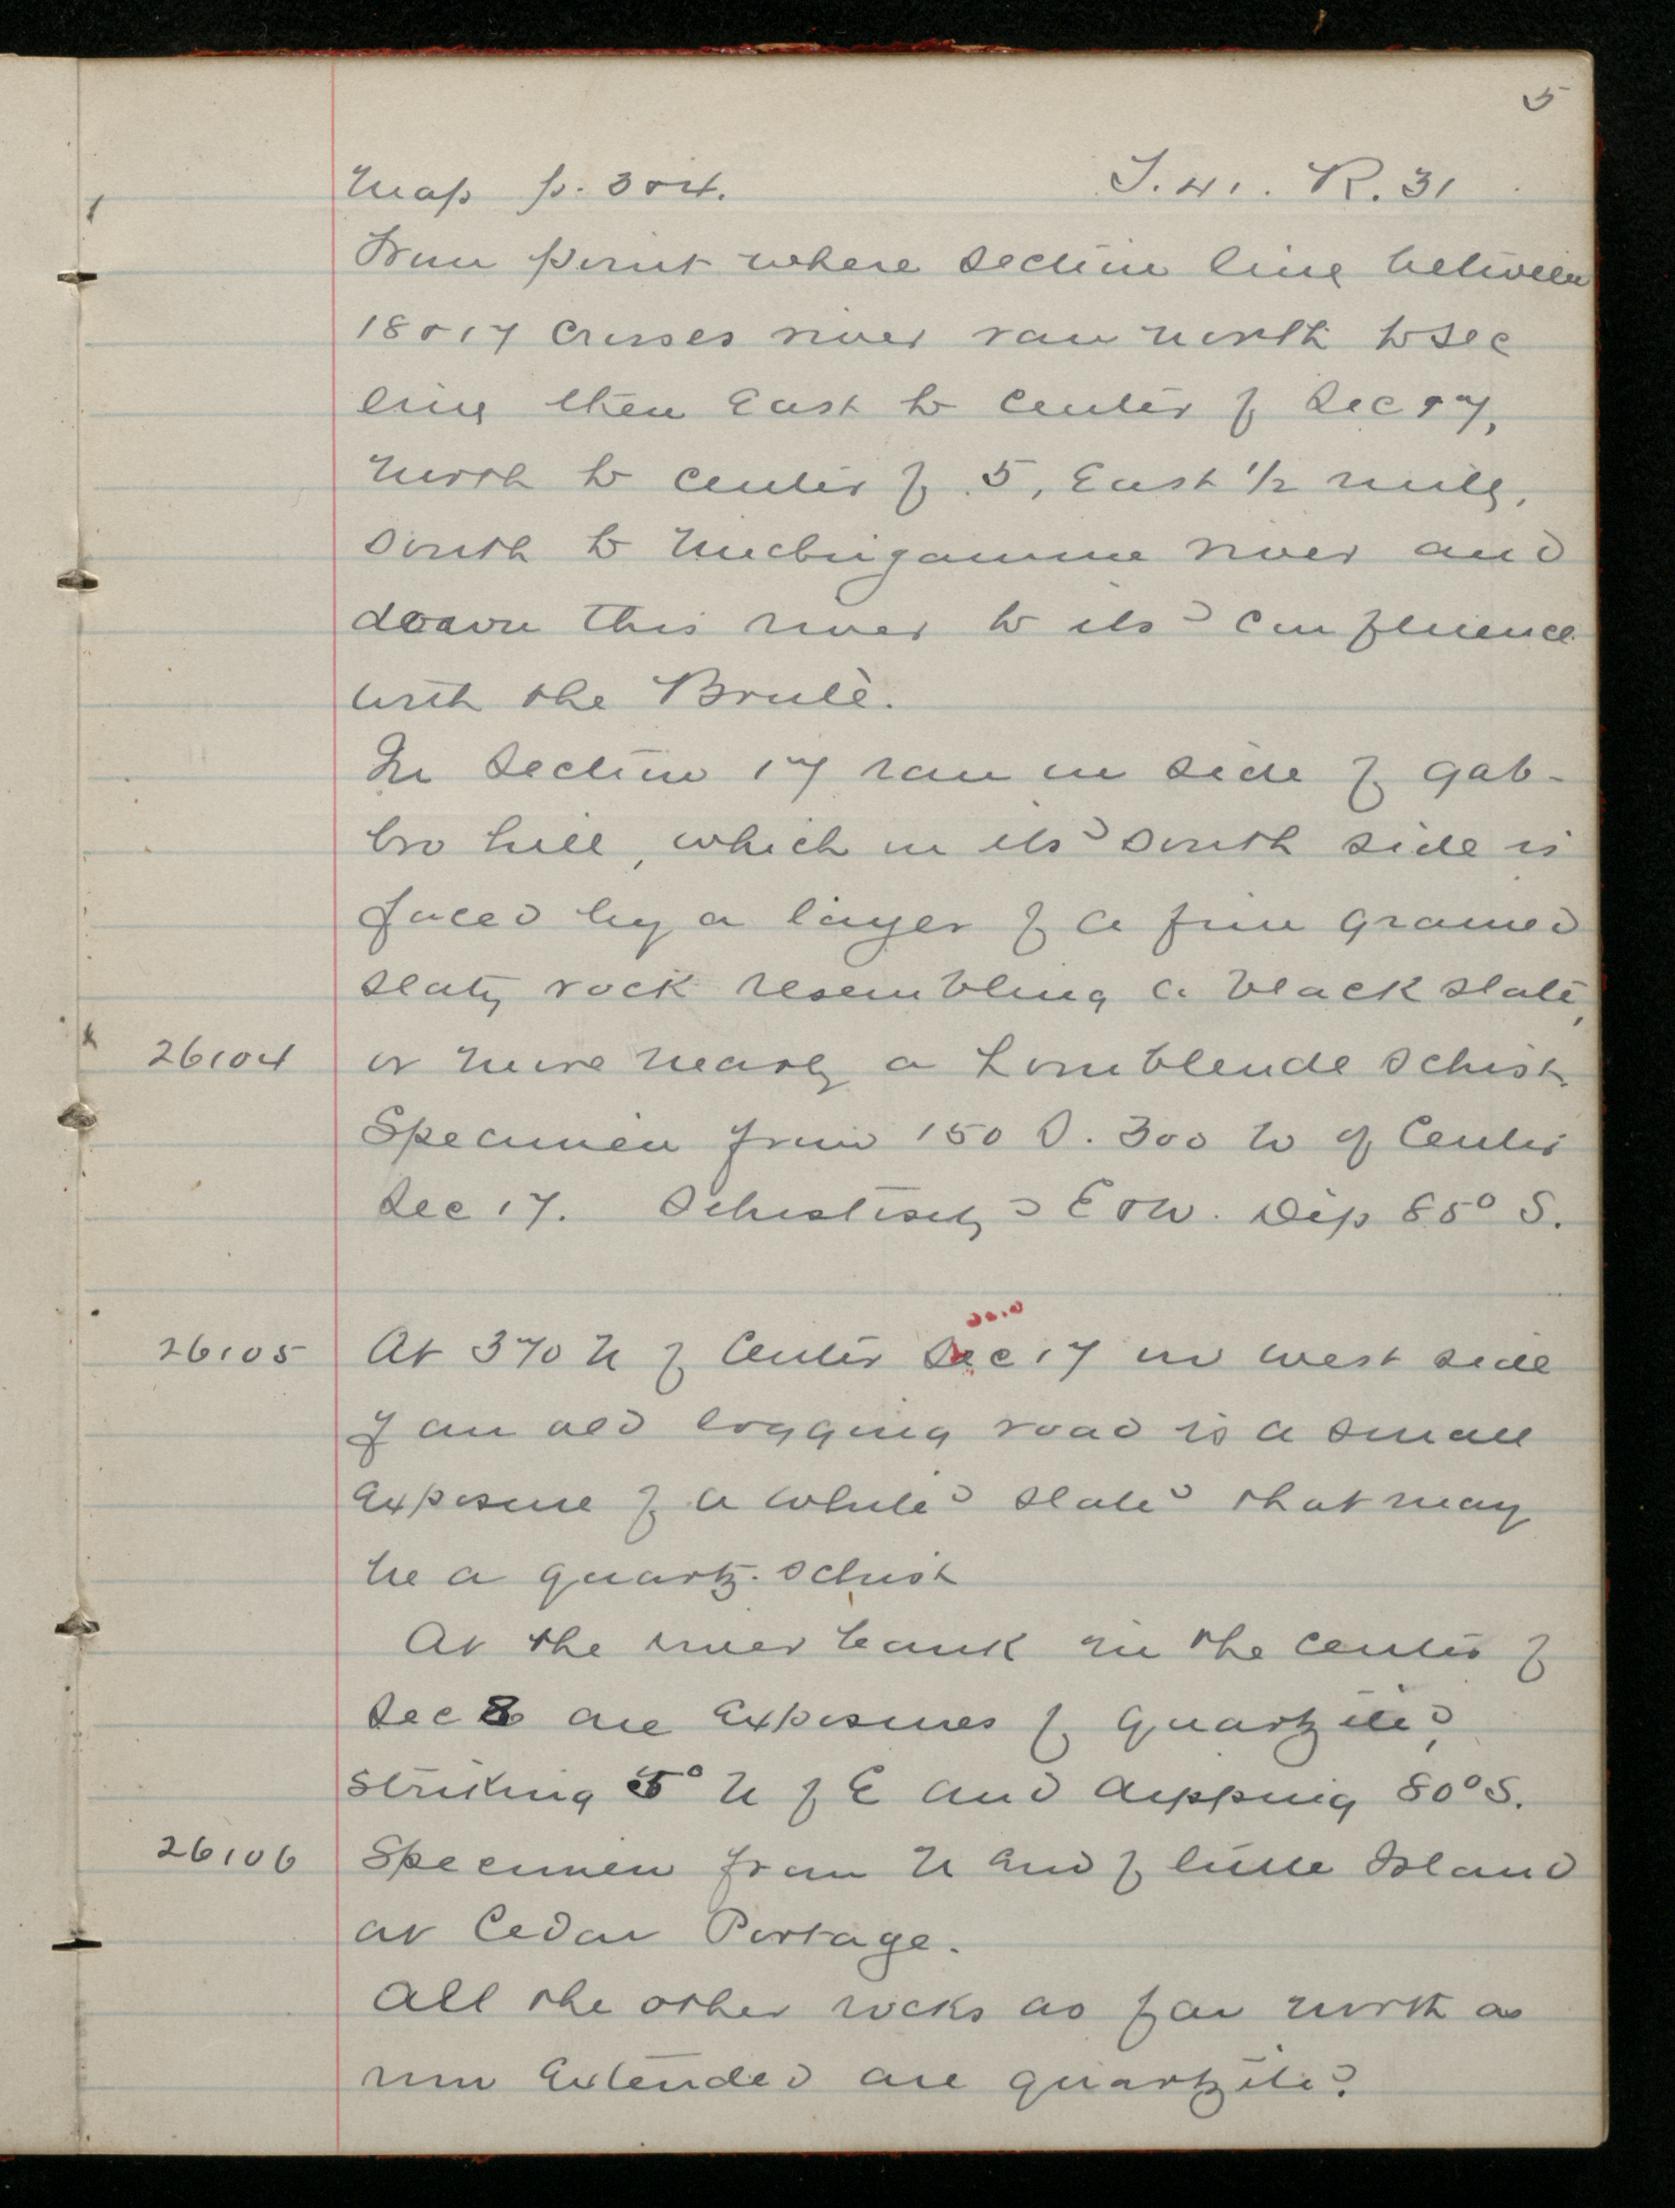 5
Map p. 3 & 4. T. 41. R. 31
From point where section line between
18 & 17 crosses river ran north to sec
line then East to center of Sec 17,
North to center of 5, East 1/2 mile,
South to Michigamme river and
down this river to its confluence
with the Brulè.
In Section 17 ran on side of gab-
bro hill, which on its south side is
faced by a layer of a fine grained
slaty rock resembling a black slate,
26104 or more nearly a hornblende schist.
Specimen from 150 S. 300 W of Center
Sec 17. Schistosity = E & W. Dip 85° S.
26105 At 370 N of Center Sec 17 on west side
of an old logging road is a small
exposure of a white slate that may
be a quartz-schist
At the river bank in the center of
Sec 8 are exposures of quartzite,
striking 5° N of E and dipping 80° S.
26106 Specimen from N end of little Island
at Cedar Portage.
All the other rocks as far north as
run extended are quartzite.